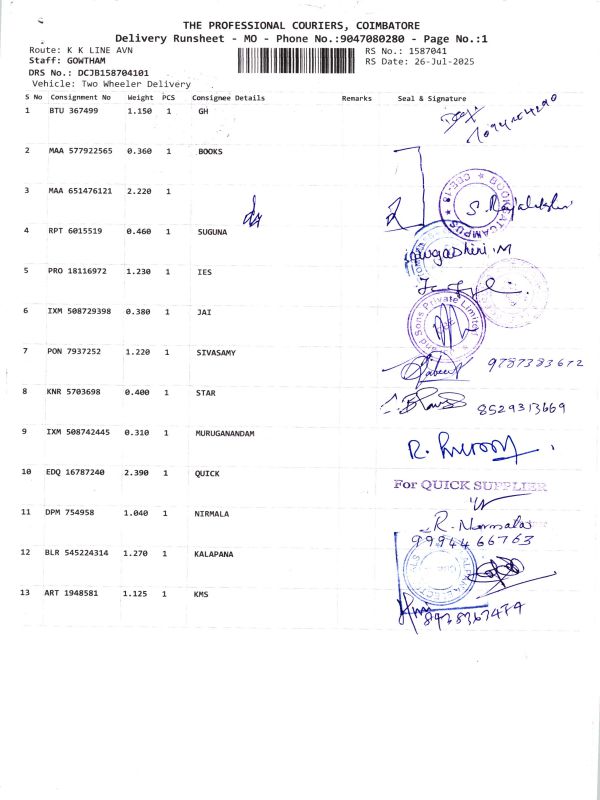 THE PROFESSIONAL COURIERS, COIMBATORE
Delivery Runsheet - MO - Phone No.:9047080280 - Page No.:1
Route: K K LINE AVN
RS No.: 1587041
Staff: GOWTHAM
RS Date: 26-Jul-2025
DRS No.: DCJB158704101
Vehicle: Two Wheeler Delivery
S No Consignment No Weight PCS Consignee Details Remarks Seal & Signature
1 BTU 367499 1.150 1 GH
2 MAA 577922565 0.360 1 BOOKS
3 MAA 651476121 2.220 1
4 RPT 6015519 0.460 1 SUGUNA
5 PRO 18116972 1.230 1 IES
6 IXM 508729398 0.380 1 JAI
7 PON 7937252 1.220 1 SIVASAMY
9787383672
8 KNR 5703698 0.400 1 STAR
8529313669
9 IXM 508742445 0.310 1 MURUGANANDAM
10 EDQ 16787240 2.390 1 QUICK
For QUICK SUPPLIER
11 DPM 754958 1.040 1 NIRMALA
R. Nirmala
9994466763
12 BLR 545224314 1.270 1 KALAPANA
13 ART 1948581 1.125 1 KMS